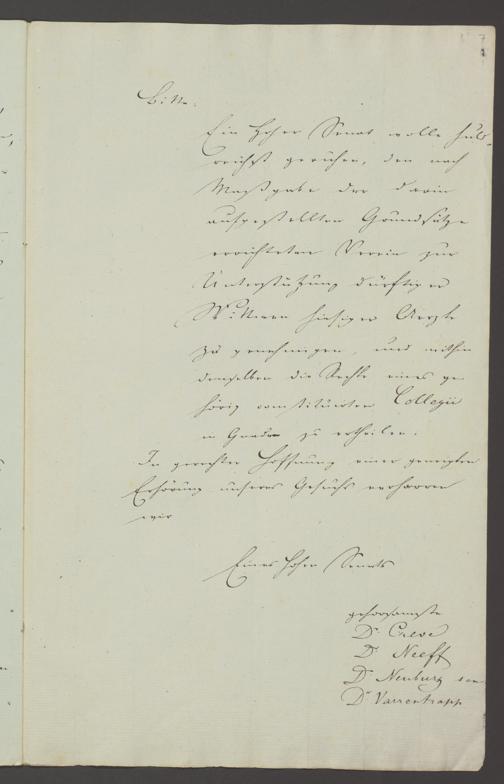 7
Bitte.
Ein Hoher Senat wolle huld-
reichst geruhen, den nach
Maßgabe der darin
aufgestellten Grundsätze
errichteten Verein zur
Unterstützung dürftiger
Wittwen hiesiger Aerzte
zu genehmigen, und mithin
demselben die Rechte eines ge-
hörig constituirten Collegii
in Gnaden zu ertheilen.
In gerechter Hoffnung einer geneigten
Erhörung unseres Gesuchs verharren
wir
Eines Hohen Senats
gehorsamste
Dr Creve
Dr Neeff
Dr Neuburg sen
Dr Varrentrapp